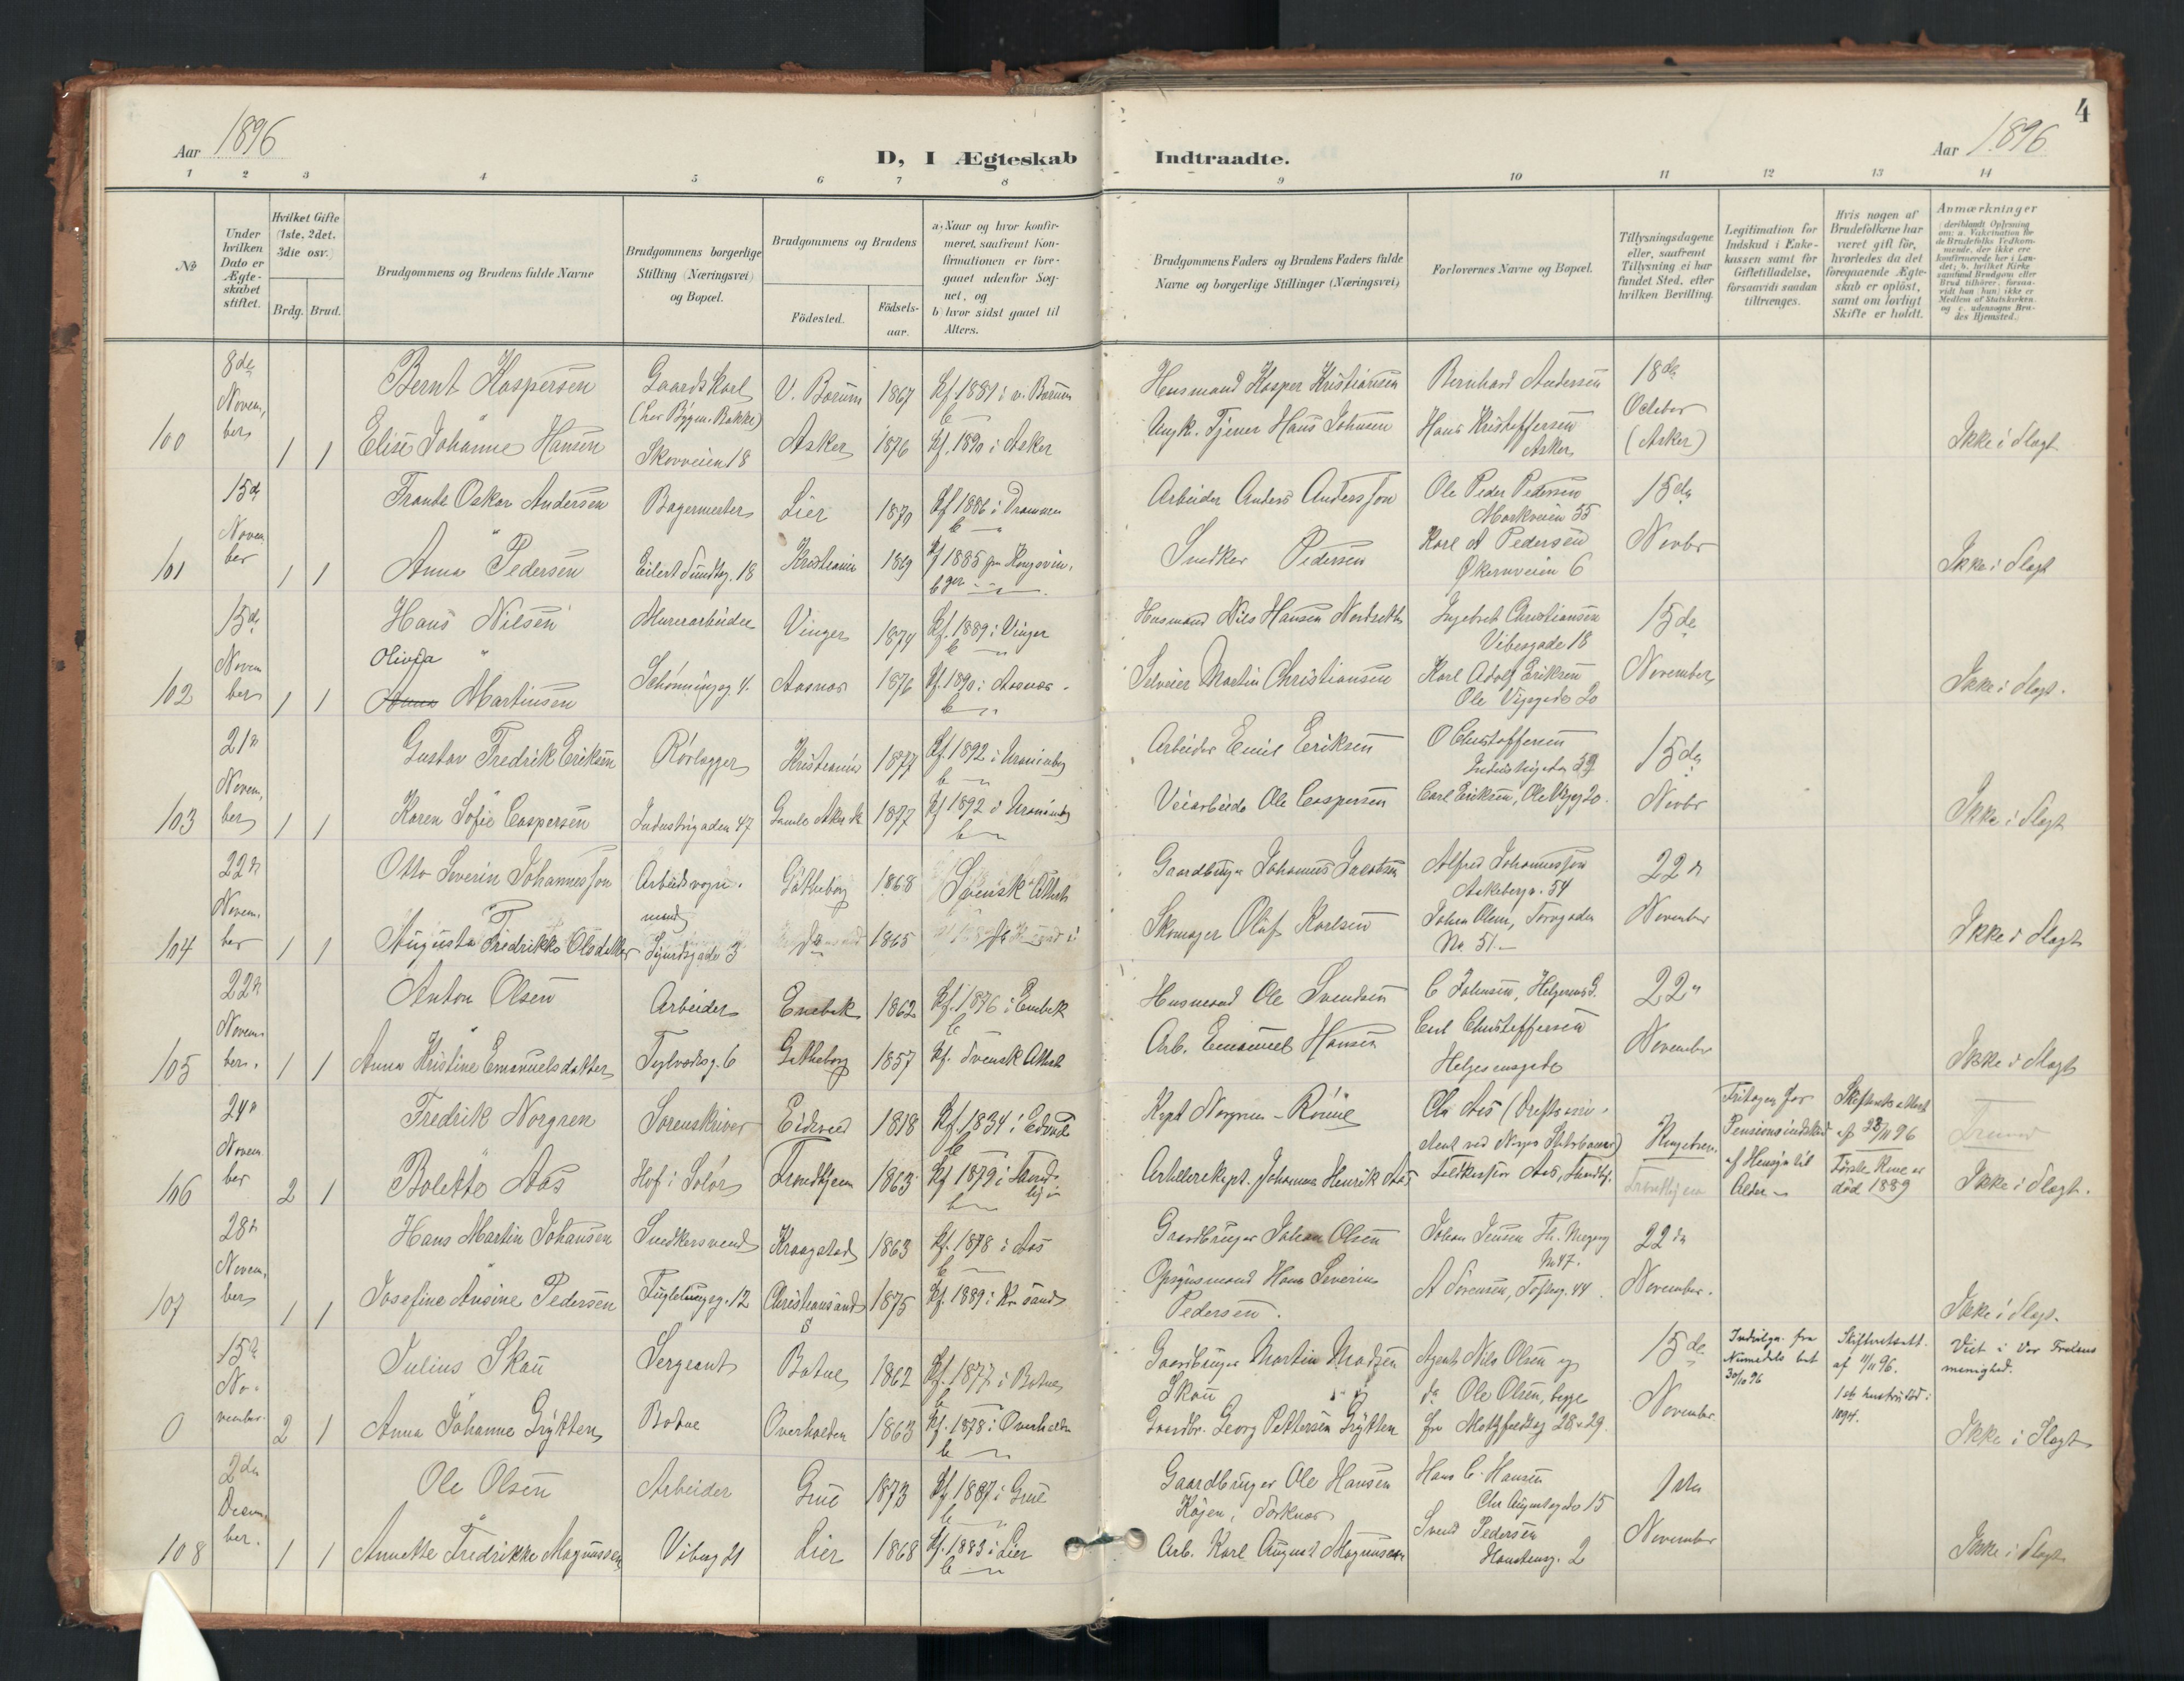 4
Aar 1896
D, I Ægteskab Indtraadte.
Aar 1896
1 2 3 4 5 6 7 8 9 10 11 12 13 14
No
Under hvilken Dato er Ægteskabet stiftet.
Hvilket Gifte (1ste, 2det, 3die osv.)
Brdg. Brud.
Brudgommens og Brudens fulde Navne
Brudgommens borgerlige Stilling (Næringsvei) og Bopæl.
Brudgommens og Brudens
Födested.
Födsels-aar.
a) Naar og hvor konfirmeret, saafremt Konfirmationen er foregaaet udenfor Sognet, og
b) hvor sidst gaaet til Alters.
Brudgommens Faders og Brudens Faders fulde Navne og borgerlige Stillinger (Næringsvei)
Forlovernes Navne og Bopæl.
Tillysningsdagene eller, saafremt Tillysning ei har fundet Sted, efter hvilken Bevilling.
Legitimation for Indskud i Enkekassen samt for Giftetilladelse, forsaavidt saadan tiltrænges.
Hvis nogen af Brudefolkene har været gift för, hvorledes da det foregaaende Ægteskab er oplöst, samt om lovligt Skifte er holdt.
Anmærkninger
100 8de November 1 1
Bernt Kaspersen Gaardskarl V. Bærum 1867 Kf. 1881 i v. Bærum
Husmand Kasper Kristiansen Bernhard Andersen 18de October (Asker)
Elise Johanne Hansen Skovveien 18 Asker 1876 Kf. 1890 i Asker
Ungk. Tjener Hans Johnsen Hans Kristoffersen Asker Ikke i Slægt
101 15de November 1 1
Frants Oskar Andersen Bagermester Lier 1870 Kf 1886 i Drammen
Arbeider Anders Andersson Ole Peder Pedersen Markveien 35 15de Novbr
Anna Pedersen Eilert Sundtsg. 18 Kristiania 1869 Kf 1885
Snedker Pedersen Karl A Pedersen Økernveien 6 Ikke i Slægt
102 15de November 1 1
Hans Nilsen Murerarbeider Vinger 1874 Kf. 1889 i Vinger
Husmand Nils Hansen Ingebret Christiansen Vibesgade 18 15de November
Olivia
Anna Martinsen Schønningsg 4. Aasnæs 1876 Kf. 1890 i Aasnæs
Selveier Martin Christiansen Karl Adolf Eriksen Ole Vigsgade 20 Ikke i Slægt.
103 21de November 1 1
Gustav Fredrik Eriksen Rørlægger Kristiania 1877 Kf. 1892 i Uranienborg
Arbeider Emil Eriksen O Christoffersen 15de Novbr
Karen Sofie Caspersen Industrigaden 47 Gamle Aker 1877 Kf 1892 i Uranienborg
Veiarbeider Ole Caspersen Carl Eriksen, Ole Vigsg 20. Ikke i Slægt
104 22de November 1 1
Otto Severin Johannesson Arbeidsvogn-mand Gøtheborg 1868 Svensk Attest
Gaardbruger Johannes Jacobsen Alfred Johannesson Akebergv. 54 22de November
Augusta Fredrikke Olsdatter Sigurdsgade 3 do 1865
Skomager Oluf Karlsen Johan Olsen, Torvgaden No. 51. Ikke i Slægt
105 22de November. 1 1
Anton Olsen Arbeider Enebak 1862 Kf. 1876 i Enebak
Husmand Ole Svendsen C Johnsen, Helgesensg. 22de November
Anna Kristine Emanuelsdatter 6 Gøtheborg 1857 Kf. Svensk Attest
Arb. Emanuel Hansen Carl Christoffersen Helgesensgade Ikke i Slægt
106 24de November 2 1
Fredrik Norgren Sorenskriver Eidsvold 1818 Kf. 1834 i Eidsvold
Kapt Norgren Ole Aas
Fritagen for Pensionsindskud af Hensyn til Alder
Skifteretsattest af 23/11 96 Første Kone er død 1889
Bolette Aas Hof i Solør Trondhjem 1863 Kf 1879 i Trondhjem
Artillerikapt. Johannes Henrik Aas Kongebrev. Ikke i Slægt.
107 28de November 1 1
Hans Martin Johansen Snedkersvend Kraagstad 1863 Kf. 1878 i Aas
Gaardbruger Johan Olsen Johan Jensen Th. Meyersg No 47. 22de November.
Josefine Ansine Pedersen 12 Christiansand S 1875 Kf. 1889 i Kr.sand
Opsynsmand Hans Severin Pedersen. A Sørensen, Toftesg. 44. Ikke i Slægt.
0 15de November. 2 1
Julius Skau Sergeant Botne 1862 Kf. 1877 i Botne
Gaardbruger Martin Madsen Skau Agent Nils Olsen og 15de November
af 4/11 96. Viet i Vor Frelsers menighed.
Anna Johanne Grytten Botne Overhalden 1863 Kf. 1878 i Overhalden
Gaardbr. Georg Pettersen Grytten do Ole Olsen, begge fra Motzfeldtsg 28 & 29.
1ste hustru død i 1894. Ikke i Slægt
108 2den December. 1 1
Ole Olsen Arbeider Grue 1873 Kf 1887 i Grue
Gaardbruger Ole Hansen Hans C. Hansen 15 1ste November
Annette Fredrikke Magnussen Vibesg 21 Lier 1868 Kf. 1883 i Lier
Arb. Karl August Magnussen Svend Pedersen 2 Ikke i Slægt